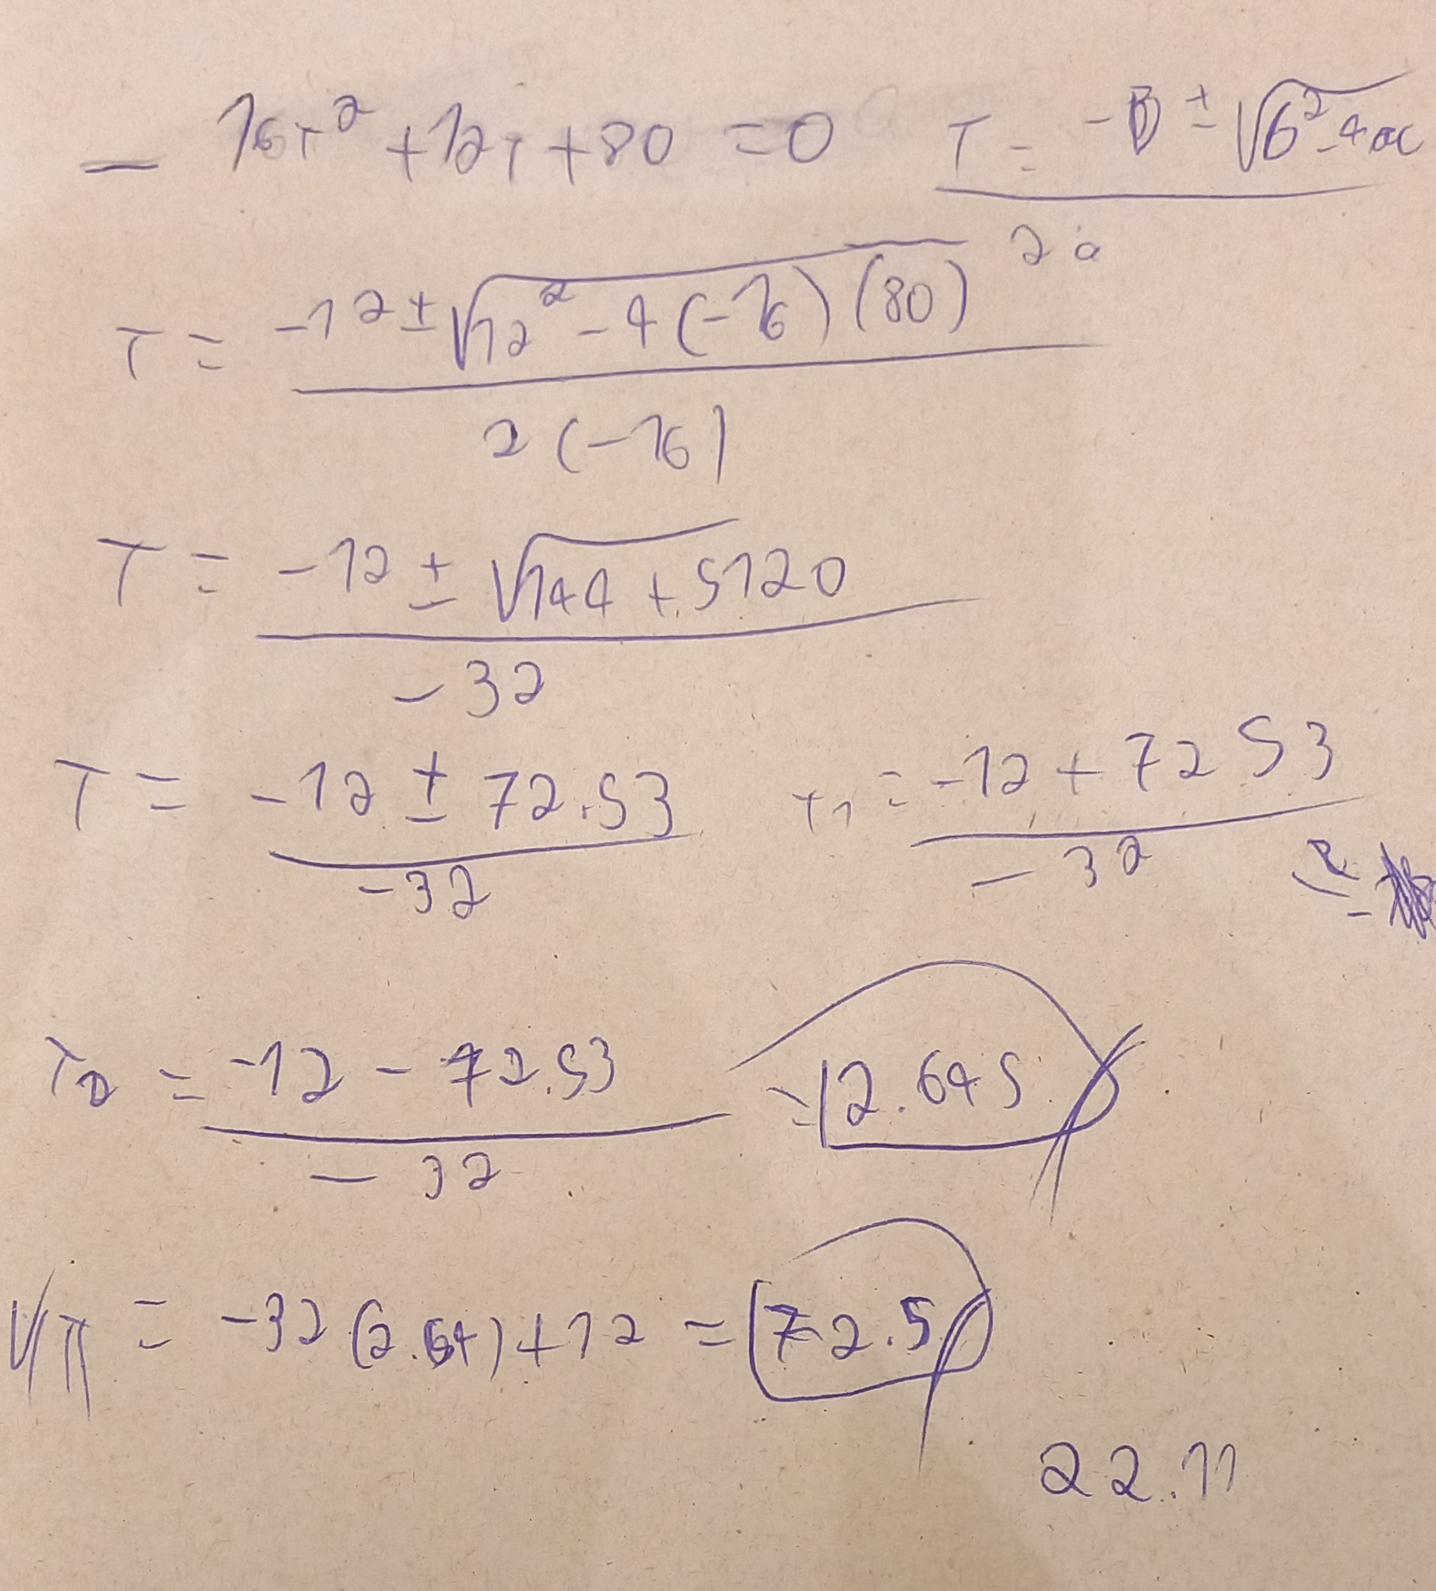 - 16T² + 12T + 80 = 0    T = (-B ± √(b² - 4ac)) / 2a
T = (-12 ± √(12² - 4(-16)(80))) / 2(-16)
T = (-12 ± √(144 + 5120)) / -32
T = (-12 ± 72.53) / -32    T1 = (-12 + 72.53) / -32 =
T2 = (-12 - 72.53) / -32 = 2.645
= -32(2.64) + 12 = 72.5
22.11